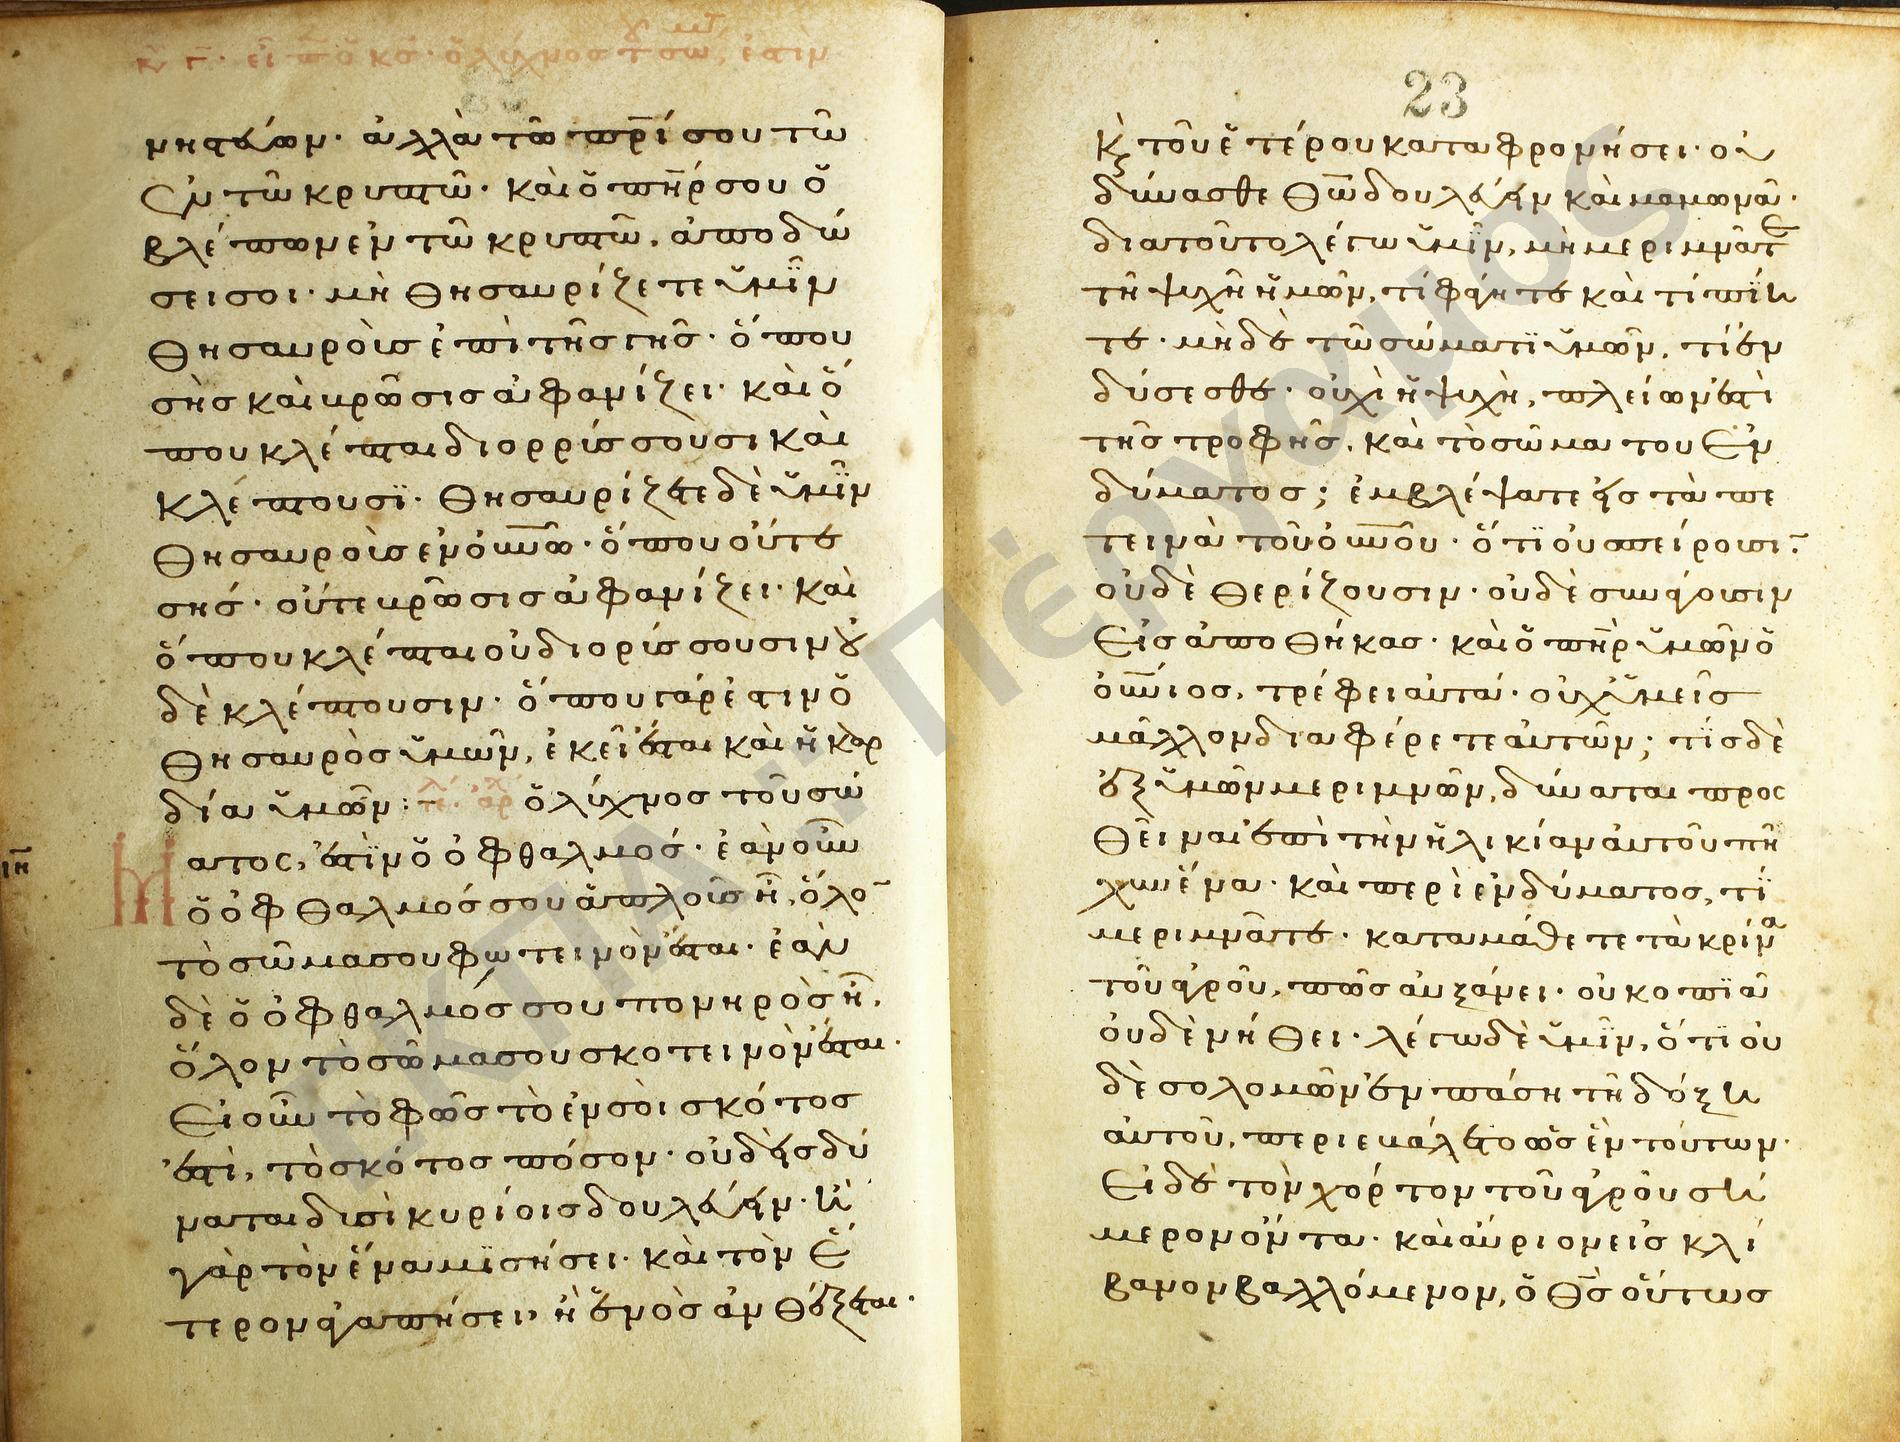 κυ γ· εἶπ ὁ κς· ὁ λύχνος τοῦ σώμτ, ἐστὶν
νηστεύων· ἀλλὰ τῶ πρί σου τῶ
ἐν τῶ κρυπτῶ· καὶ ὁ πηρ σου ὁ
βλέπων ἐν τῶ κρυπτῶ, ἀποδώ
σει σοι· μὴ θησαυρίζετε ὑμῖν
θησαυροὺς ἐπὶ τῆς γῆς· ὅπου
σὴς καὶ βρῶσις ἀφανίζει· καὶ ὅ
που κλέπται διορρύσσουσι καὶ
κλέπτουσϊ· θησαυρίζετε δὲ ὑμῖν
θησαυροὺς ἐν ὀυνῶ· ὅπου οὔτε
σής· οὔτε βρῶσις ἀφανίζει· καὶ
ὅπου κλέπται οὐ διορύσσουσιν οὐ
δὲ κλέπτουσιν· ὅπου γάρ ἐστιν ὁ
θησαυρὸς ὑμῶν, ἐκεῖ ἔσται καὶ ἡ καρ
δία ὑμῶν : τε. αρ ὁ λύχνος τοῦ σώ
ατος, ἐστϊν ὁ ὀφθαλμός· ἐὰν οὖν
ιη
Μ
ὁ ὀφθαλμός σου ἁπλοῦς ῆ, ὅλο¯
τὸ σῶμα σου φωτεινὸν ἔσται· ἐὰν
δὲ ὁ ὀφθαλμός σου πονηρὸς ῆ,
ὅλον τὸ σῶμα σου σκοτεινὸν ἔσται·
Εἰ οὖν τὸ φῶς τὸ ἐν σοὶ σκότος
ἐστὶ, τὸ σκότος πόσον· οὐδεὶς δύ
ναται δυσὶ κυρίοις δουλεύειν· ἢ
γὰρ τὸν ἕνα μϊσήσει· καὶ τὸν ἕ
τερον ἀγαπήσει, ἢ ἑνὸς ἀνθέξεται·
23
κ̀ τοῦ ἑτέρου καταφρονήσει· οὐ
δύνασθε θῶ δουλεύειν καὶ μαμωνᾶ·
διατοῦτο λέγω ὑμῖν, μὴ μεριμνᾶτε
τῆ ψυχῆ ἡμῶν, τί φάγητε καὶ τί πίη
τε· μὴδὲ τῶ σώματϊ ὑμῶν, τί ἐν
δύσεσθε· οὐχὶ ἡ ψυχὴ, πλείων ἐστὶ
τῆς τροφῆς, καὶ τὸ σῶμα του ἐν
δύματος; ἐμβλέψατε εἰς τὰ πε
τεινὰ τοῦ ὀυνοῦ· ὅτϊ οὐ σπείρουσι¯
οὐδὲ θερίζουσιν· οὐδὲ συνάγουσιν
Εἰς ἀποθήκας· καὶ ὁ πηρ ὑμῶν ὁ
ὀυνιος, τρέφει αὐτά· οὐχ ὑμεῖς
μᾶλλον διαφέρετε αὐτῶν; τίς δὲ
ἐξ ὑμῶν μεριμνῶν, δύναται προς
θεῖναι ἐπὶ τὴν ἡλικίαν αὐτοῦ πῆ
χυν ἕνα· καὶ περὶ ἐνδύματος, τί
μεριμνᾶτε· καταμάθετε τὰ κρίνα
τοῦ ἀγροῦ, πῶς αὐξάνει· οὐ κοπϊᾶ
ὀυδὲ νήθει· λέγω δὲ ὑμῖν, ὅτϊ οὐ
δὲ σολομῶν ἐν πάση τῆ δόξη
αὐτοῦ, περιεβάλετο ὡς ἓν τούτων·
Εἰ δὲ τὸν χόρτον τοῦ ἀγροῦ σή
μερον ὄντα· καὶ αὔριον εἰς κλί
βανον βαλλόμενον, ὁ θς οὕτως